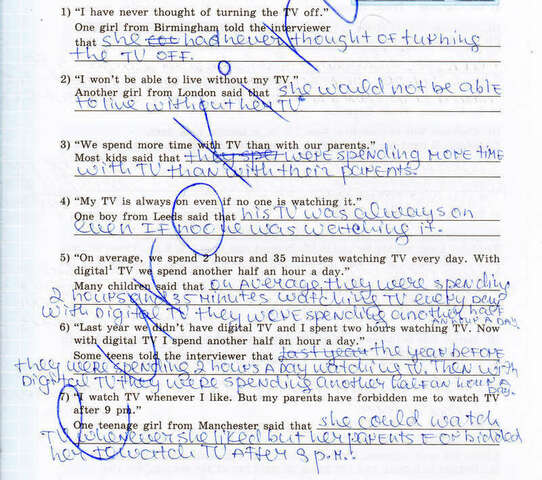 1) "I have never thought of turning the TV off."
One girl from Birmingham told the interviewer
that she had never thought of turning
the TV OFF.
2) "I won't be able to live without my TV."
Another girl from London said that she would not be able
to live without her TV
3) "We spend more time with TV than with our parents."
Most kids said that they were spending more time
with TV than with their parents.
4) "My TV is always on even if no one is watching it."
One boy from Leeds said that his TV was always on
even IF no one was watching it.
5) "On average, we spend 2 hours and 35 minutes watching TV every day. With
digital¹ TV we spend another half an hour a day."
Many children said that on average they were spending
2 hours and 35 minutes watching TV every day
with digital TV they were spending another half
an hour a day.
6) "Last year we didn't have digital TV and I spent two hours watching TV. Now
with digital TV I spend another half an hour a day."
Some teens told the interviewer that last year the year before
they were spending 2 hours a day watching TV. Then with
Digital TV they were spending another half an hour a
day.
7) "I watch TV whenever I like. But my parents have forbidden me to watch TV
after 9 pm."
One teenage girl from Manchester said that she could watch
TV whenever she liked but her parents forbidded
her to watch TV after 9 p.m.!